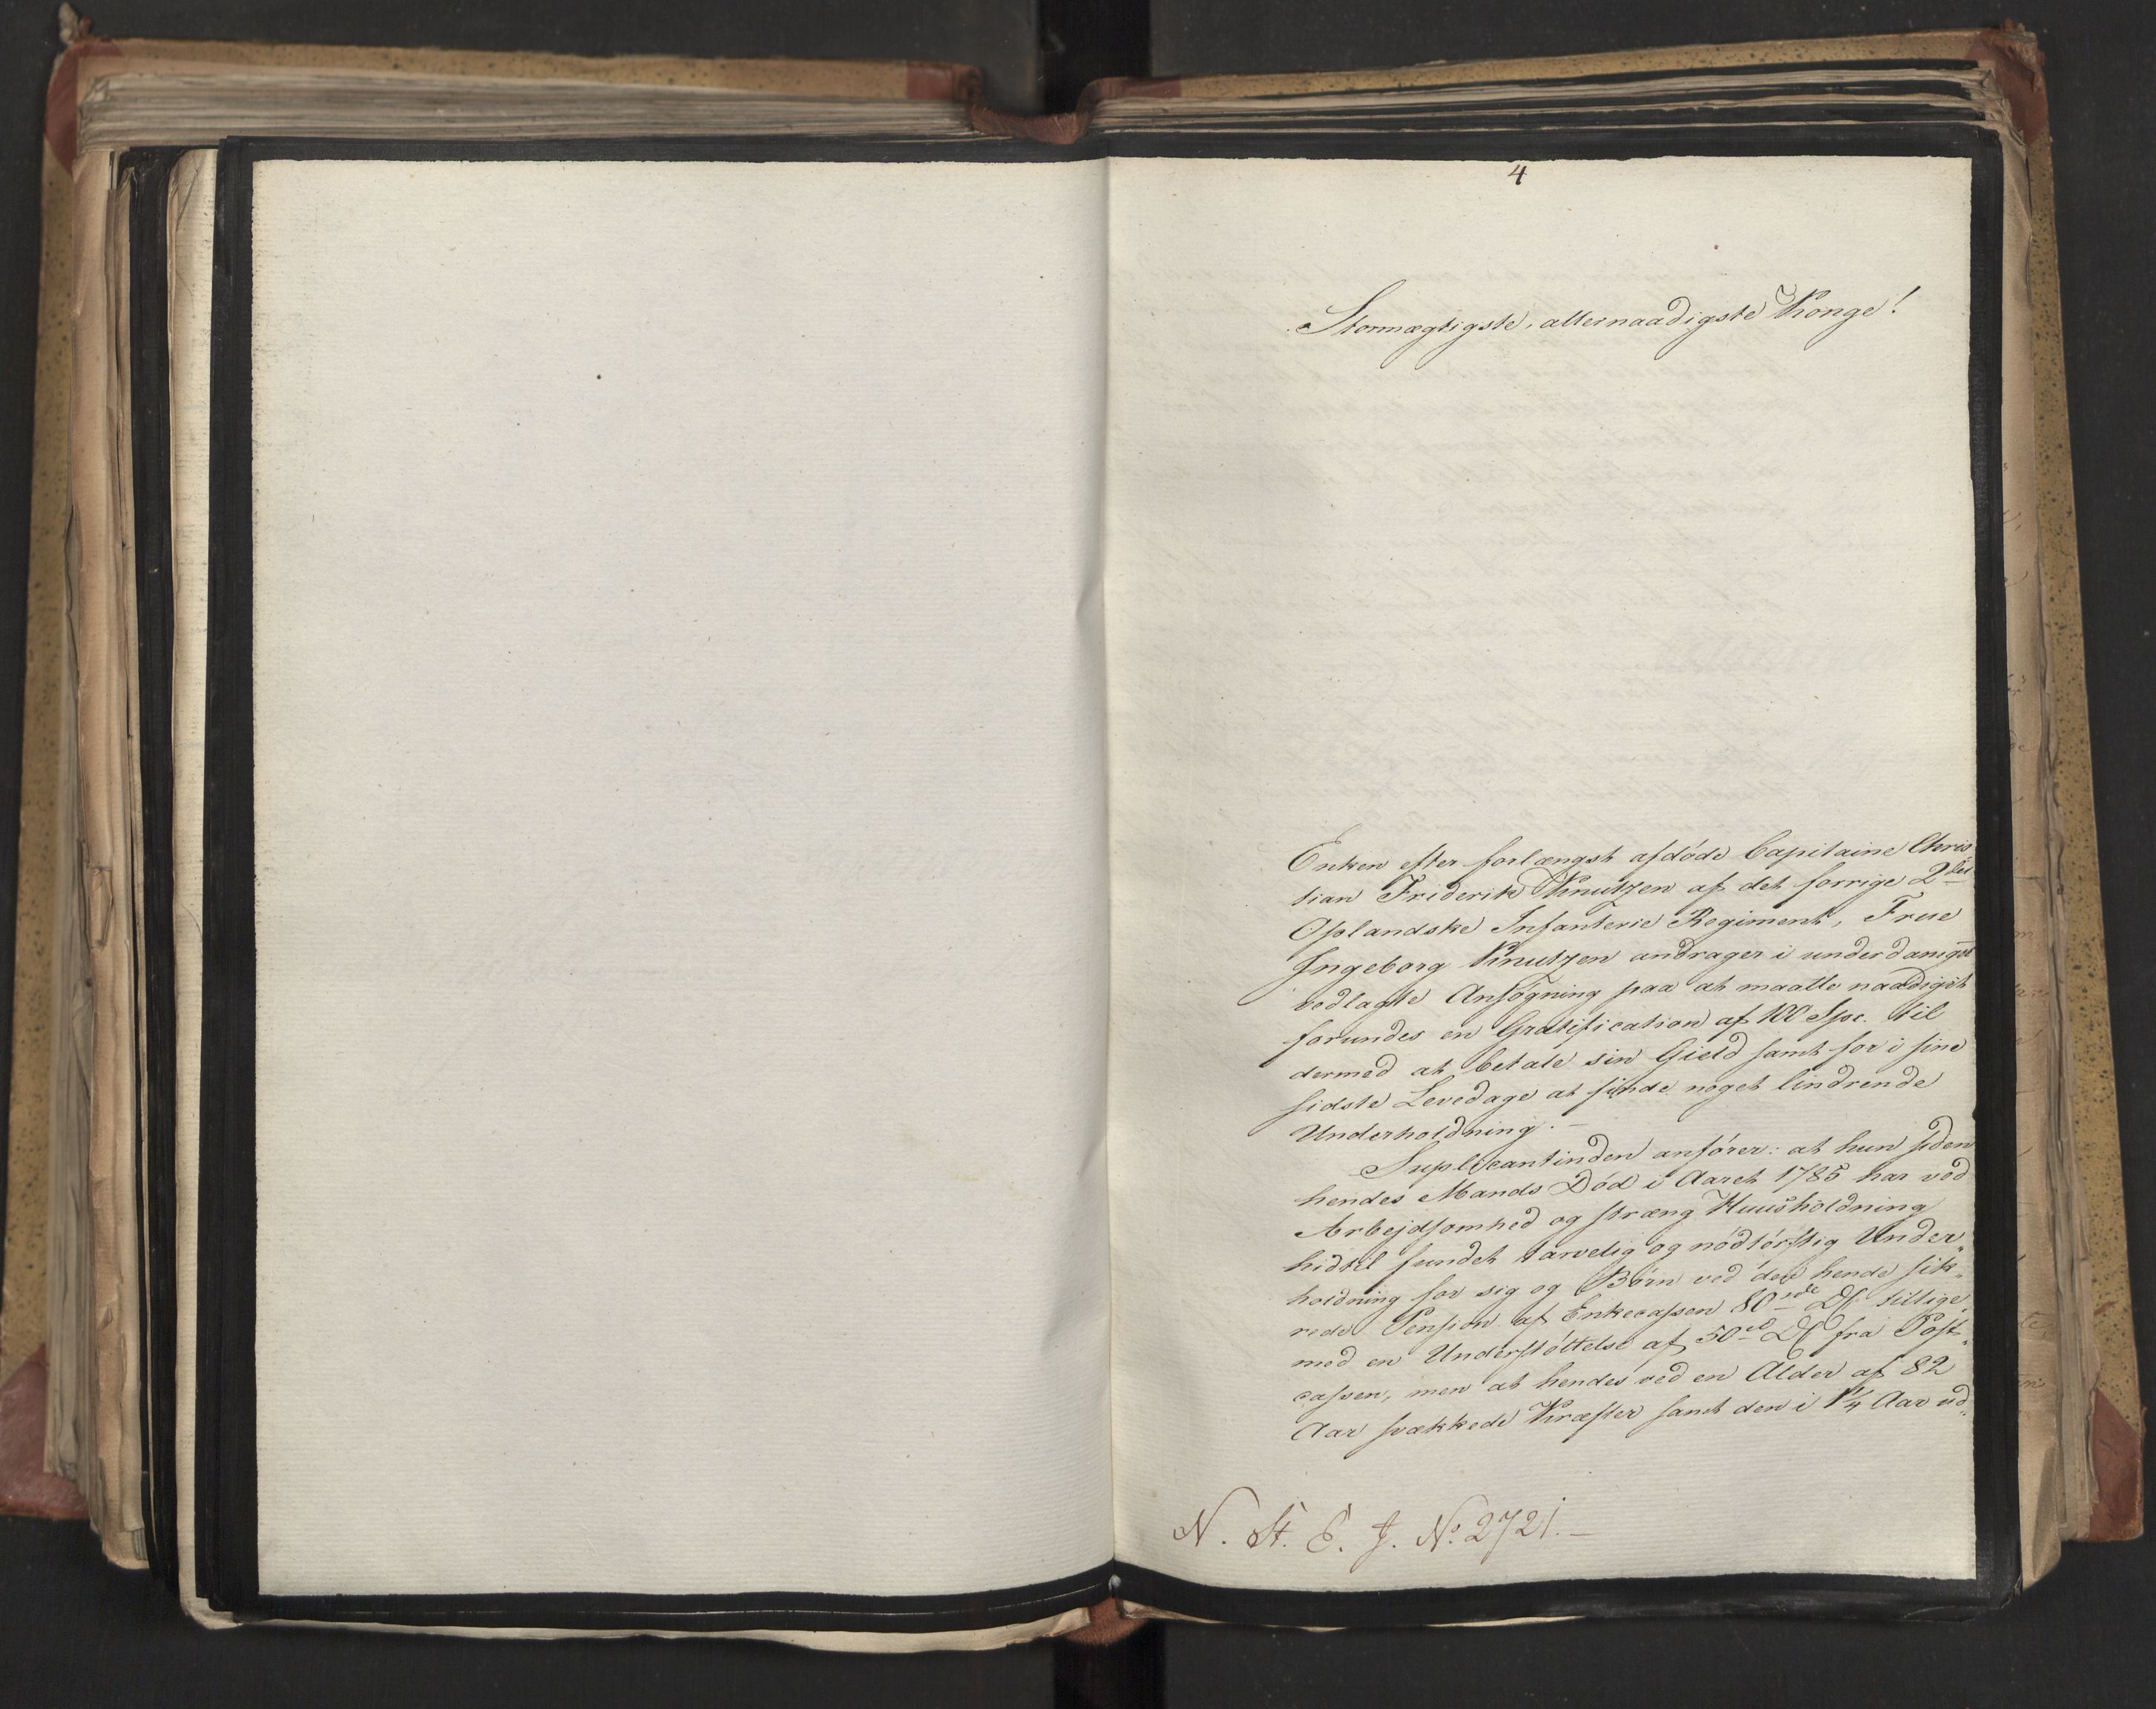 4
Stormægtigste, allernaadigste Konge!
Enken efter forlængst afdøde Capitaine Chris
tian Friderik Knutzen af det forrige 2det
Oplandske Infanterie Regiment, Frue
Ingeborg Knutzen andrager i underdanigst
vedlagte Ansøgning paa at maatte naadigst
forundes en Gratification af 100 Spc. til
dermed at betale sin Gield samt for i sine
sidste Levedage at finde noget lindrende
Underholdning. –
Suplicantinden anfører: at hun siden
hendes Mands Død i Aaret 1785 har ved
Arbejdsomhed og stræng Huusholdning
hidtil fundet tarvelig og nødtørftig Under„
holdning for sig og Børn ved den hende sik„
rede Pension af Enkecassen 80 rd tillige
med en Understøttelse af 50 rd fra Post„
cassen, men at hendes ved en Alder af 82
Aar svækkede Kræfter samt den i 1¼ Aar ud„
N. St. E. J. No. 2721. –